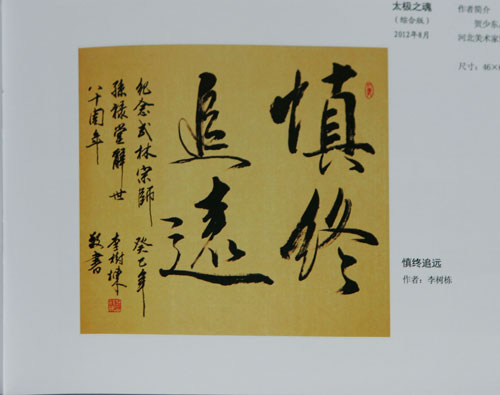 太极之魂
（综合版）
2012年8月
作者简介
贺少东，
河北美术家
尺寸：46×
慎終
追遠
紀念武林宗師
孫禄堂辭世
八十周年
癸巳年
李樹棟
敬書
慎终追远
作者：李树栋